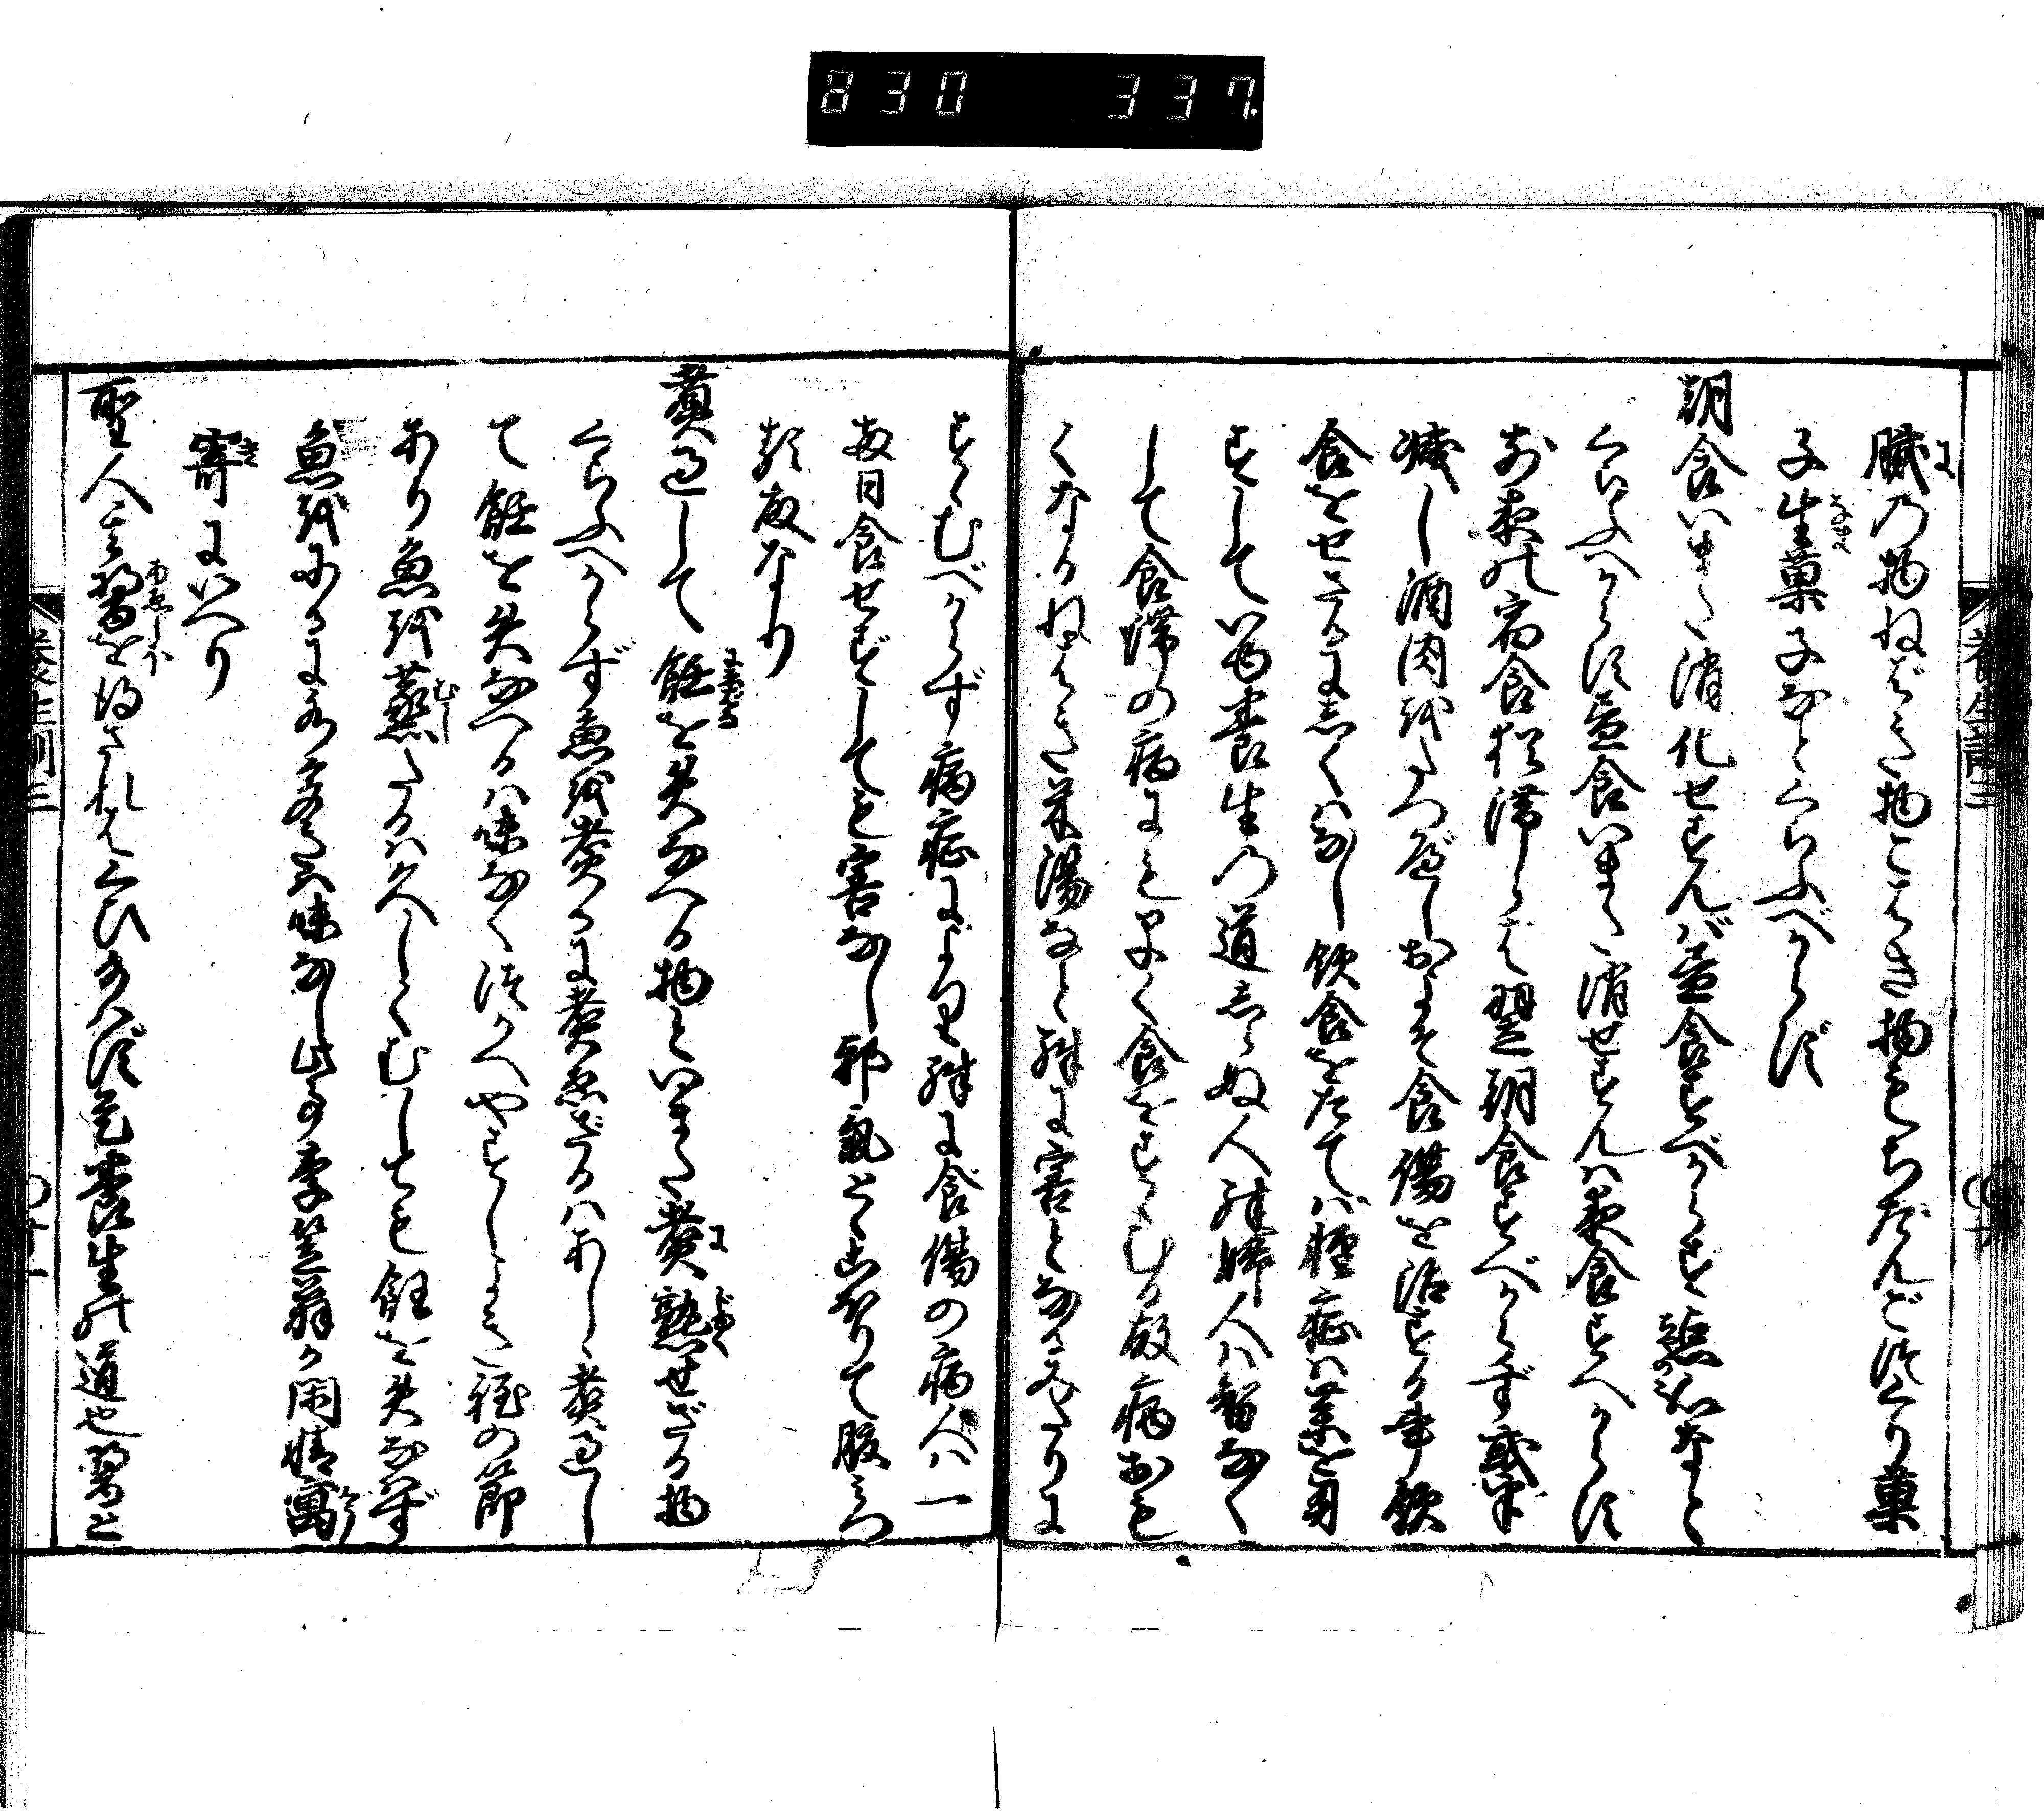 830 337
臓の物ねばき物こはき物もちだんごつくり菓
子生菓子などくらふべからず
朝食いまだ消化せずんば昼食すべからず点心など
くらふべからず昼食いまだ消せずんば夜食すべからず
前夜の宿食猶滞らば翌朝食すべからず或半
減し酒肉をたつべしおよそ食傷を治する事飲
食をせざるにしくはなし飲食をたてば軽症は薬を用
ずしていゆ養生の道しらぬ人殊婦人は智なく
して食滞の病にも早く食をすゝむる故病おも
くなるねばき米湯など殊に害となるみだりに
すゝむべからず病症により殊に食傷の病人は一
両日食せずしても害なし邪気とゞこほりて腹みつ
る故なり
煮過して飪を失なへる物といまだ煮熟せざる物
くらふべからず魚を煮るに煮ゑざるはあしゝ煮過し
て飪を失なへるは味なくつかへやすしよき程の節
あり魚を蒸たるは久しくむしても飪を失なはず
魚をにるに水多きは味なし此事李笠翁が閑情寓
寄にいへり
聖人其醤を得ざればくひ給はず是養生の道也醤と
養生訓三